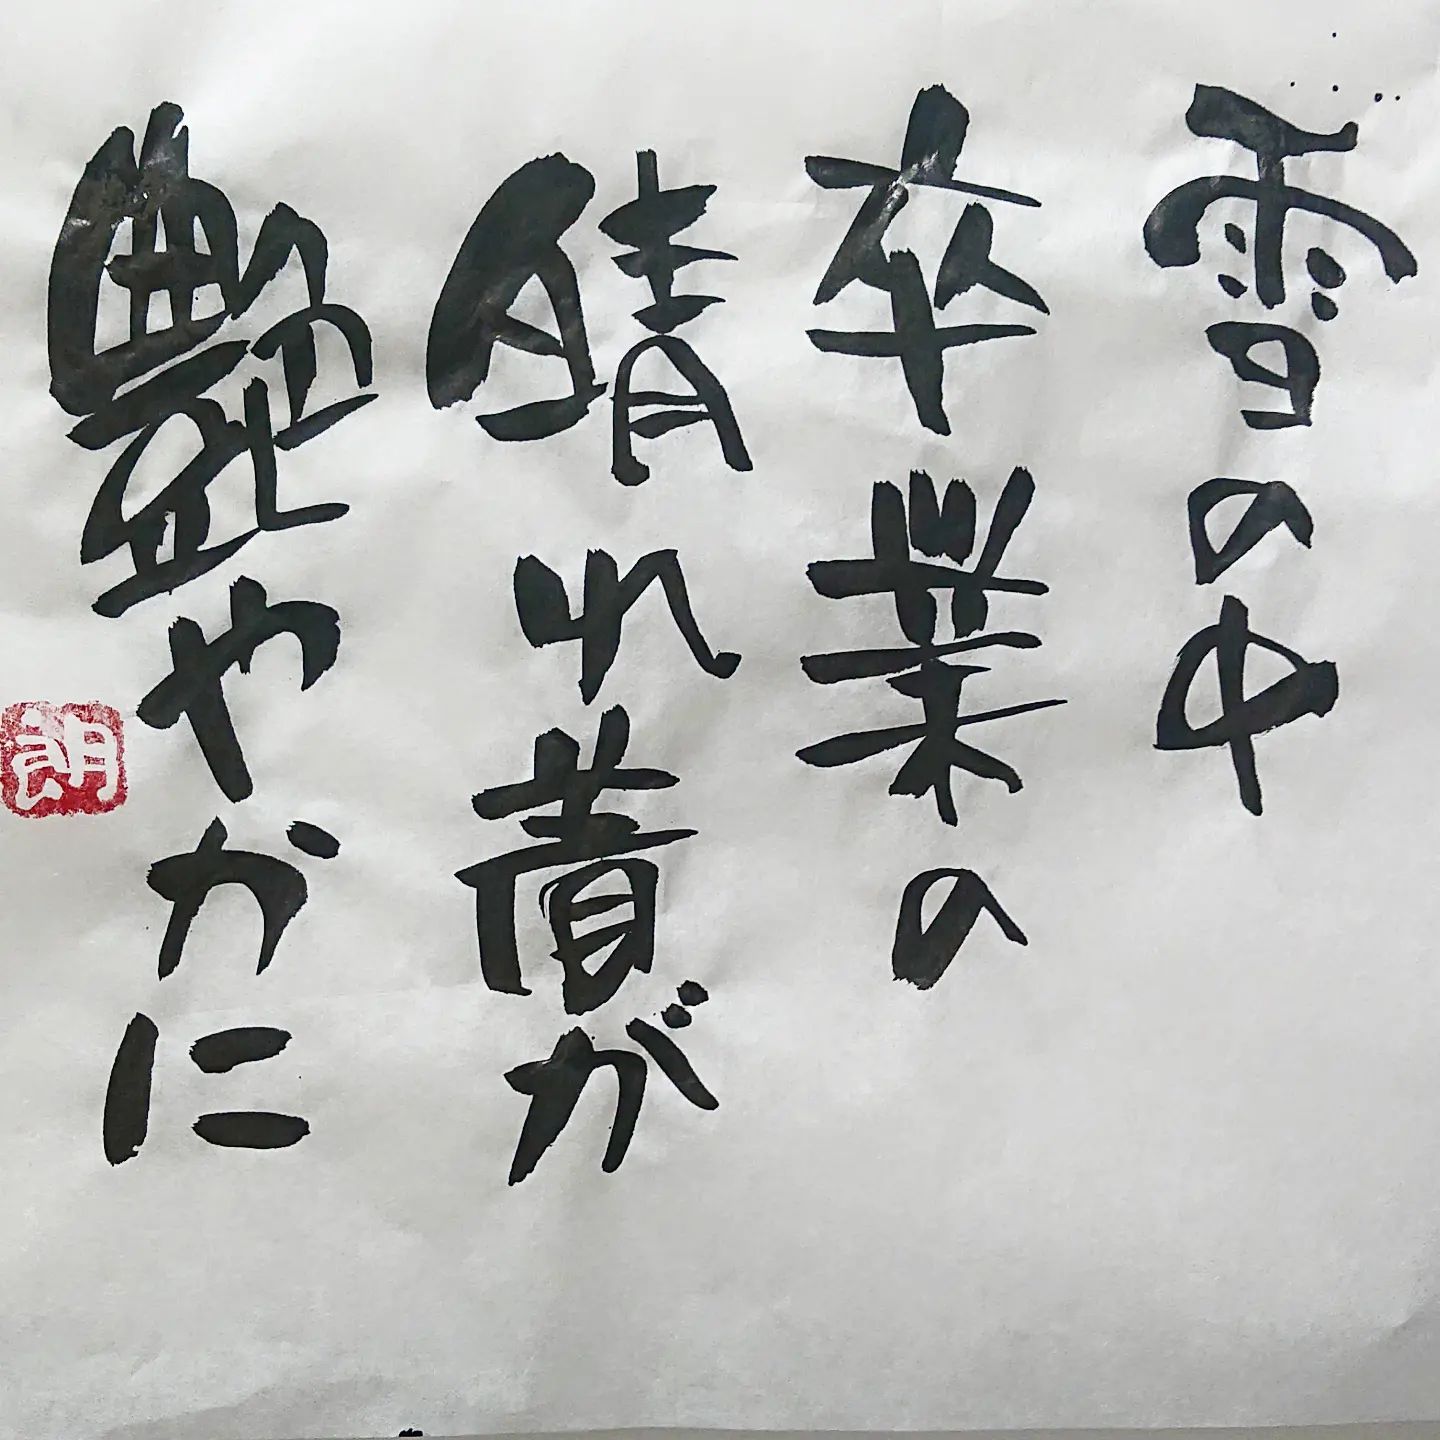 雪の中
卒業の
晴れ着が
艶やかに
朗